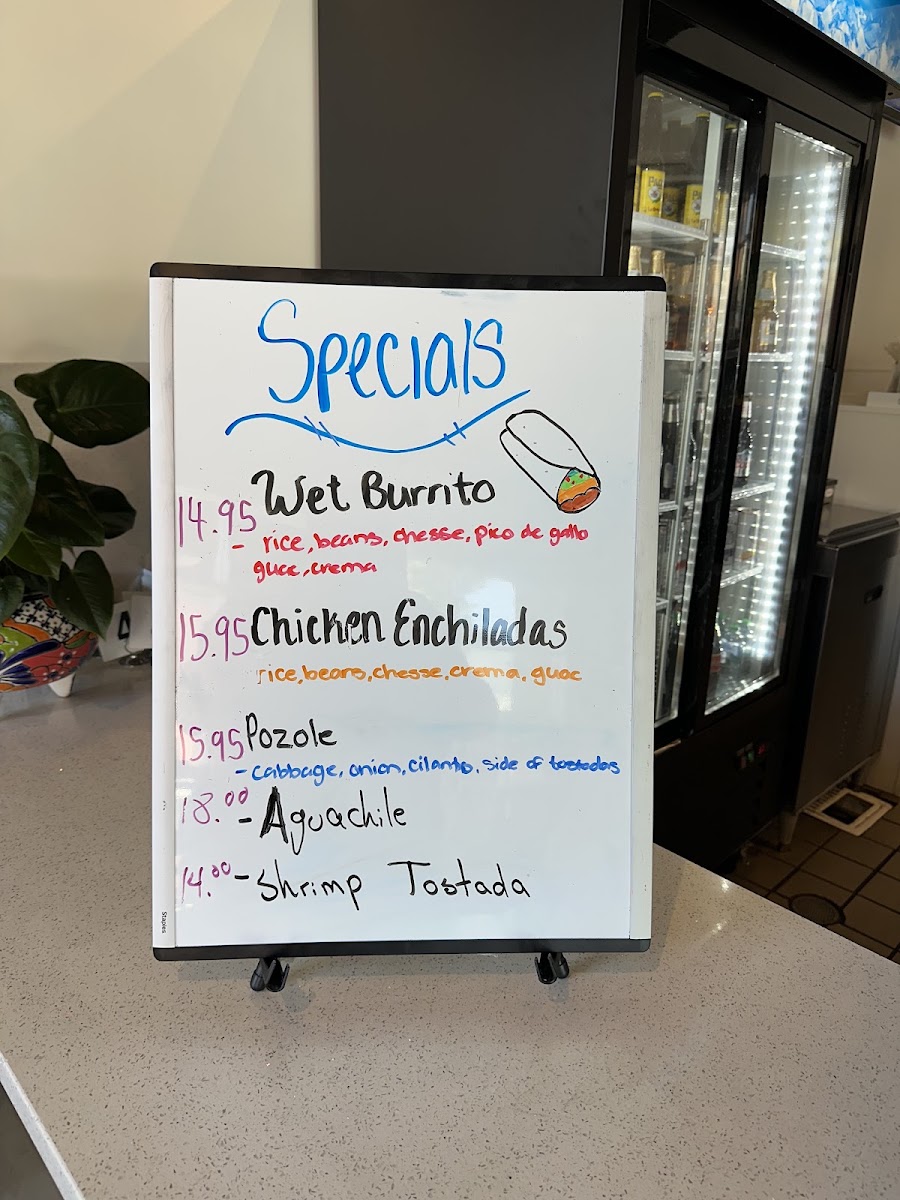 Specials
14.95 Wet Burrito
- rice, beans, chesse, pico de gallo
guac, crema
15.95 Chicken Enchiladas
rice, beans, chesse, crema, guac
15.95 Pozole
- cabbage, onion, cilantro, side of tostadas
18.00 - Aguachile
14.00 - Shrimp Tostada
Staples